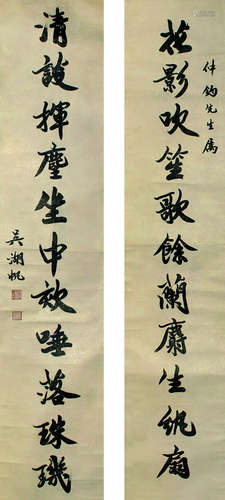 花影吹笙歌餘蘭麝生紈扇
仲鈞先生属
清談揮麈坐中欬唾落珠璣
吳湖帆